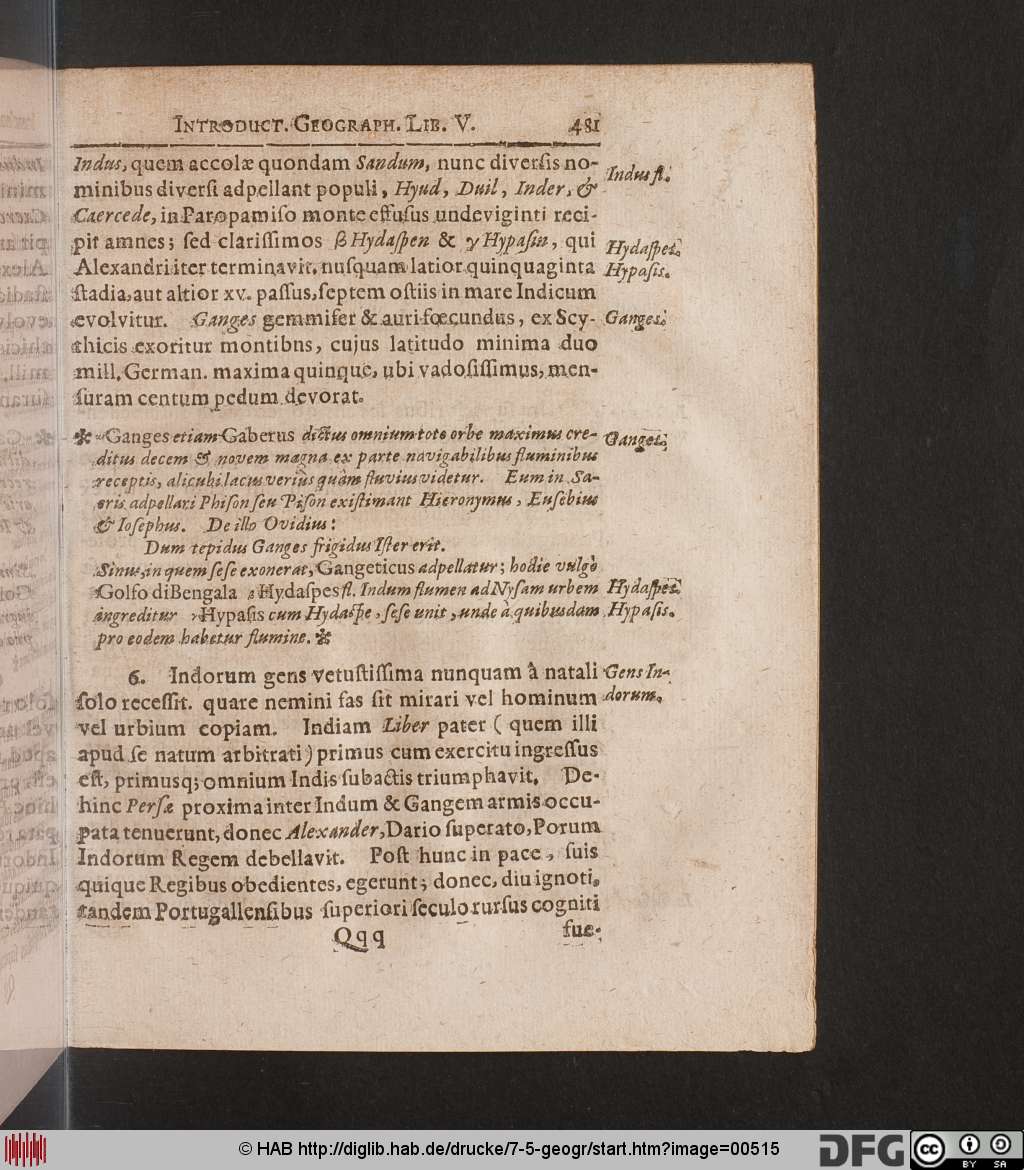 INTRODUCT. GEOGRAPH. LIB. V. 481
Indus, quem accolæ quondam Sandum, nunc diverſis no-
minibus diverſi adpellant populi, Hyud, Duil, Inder, &
Caercede, in Paropamiſo monte effuſus undeviginti reci-
pit amnes; ſed clariſſimos β Hydaſpen & γ Hypaſin, qui
Alexandri iter terminavit. nuſquam latior quinquaginta
ſtadia, aut altior xv. paſſus, ſeptem oſtiis in mare Indicum
evolvitur. Ganges gemmifer & auri fœcundus, ex Scy-
thicis exoritur montibus, cujus latitudo minima duo
mill. German. maxima quinque, ubi vadoſiſſimus, men-
ſuram centum pedum devorat.
Indus fl.
Hydaſpes.
Hypaſis.
Ganges.
* α Ganges etiam Gaberus dictus omnium toto orbe maximus cre-
ditus decem & novem magna ex parte navigabilibus fluminibus
receptis, alicubi lacus veriùs quàm fluvius videtur. Eum in Sa-
cris adpellari Phiſon ſeu Piſon exiſtimant Hieronymus, Euſebius
& Ioſephus. De illo Ovidius:
Dum tepidus Ganges frigidus Iſter erit.
Sinus, in quem ſeſe exonerat, Gangeticus adpellatur; hodie vulgò
Golfo di Bengala β Hydaſpes fl. Indum flumen ad Nyſam urbem
ingreditur γ Hypaſis cum Hydaſpe, ſeſe unit, unde à quibusdam
pro eodem habetur flumine. *
Ganges.
Hydaſpes.
Hypaſis.
6. Indorum gens vetuſtiſſima nunquam à natali
ſolo receſſit. quare nemini fas ſit mirari vel hominum
vel urbium copiam. Indiam Liber pater ( quem illi
apud ſe natum arbitrati ) primus cum exercitu ingreſſus
eſt, primusq; omnium Indis ſubactis triumphavit. De-
hinc Perſæ proxima inter Indum & Gangem armis occu-
pata tenuerunt, donec Alexander, Dario ſuperato, Porum
Indorum Regem debellavit. Poſt hunc in pace, ſuis
quique Regibus obedientes, egerunt; donec, diu ignoti,
tandem Portugallenſibus ſuperiori ſeculo rurſus cogniti
Gens In-
dorum.
Qqq fue-
© HAB http://diglib.hab.de/drucke/7-5-geogr/start.htm?image=00515
DFG
cc BY SA